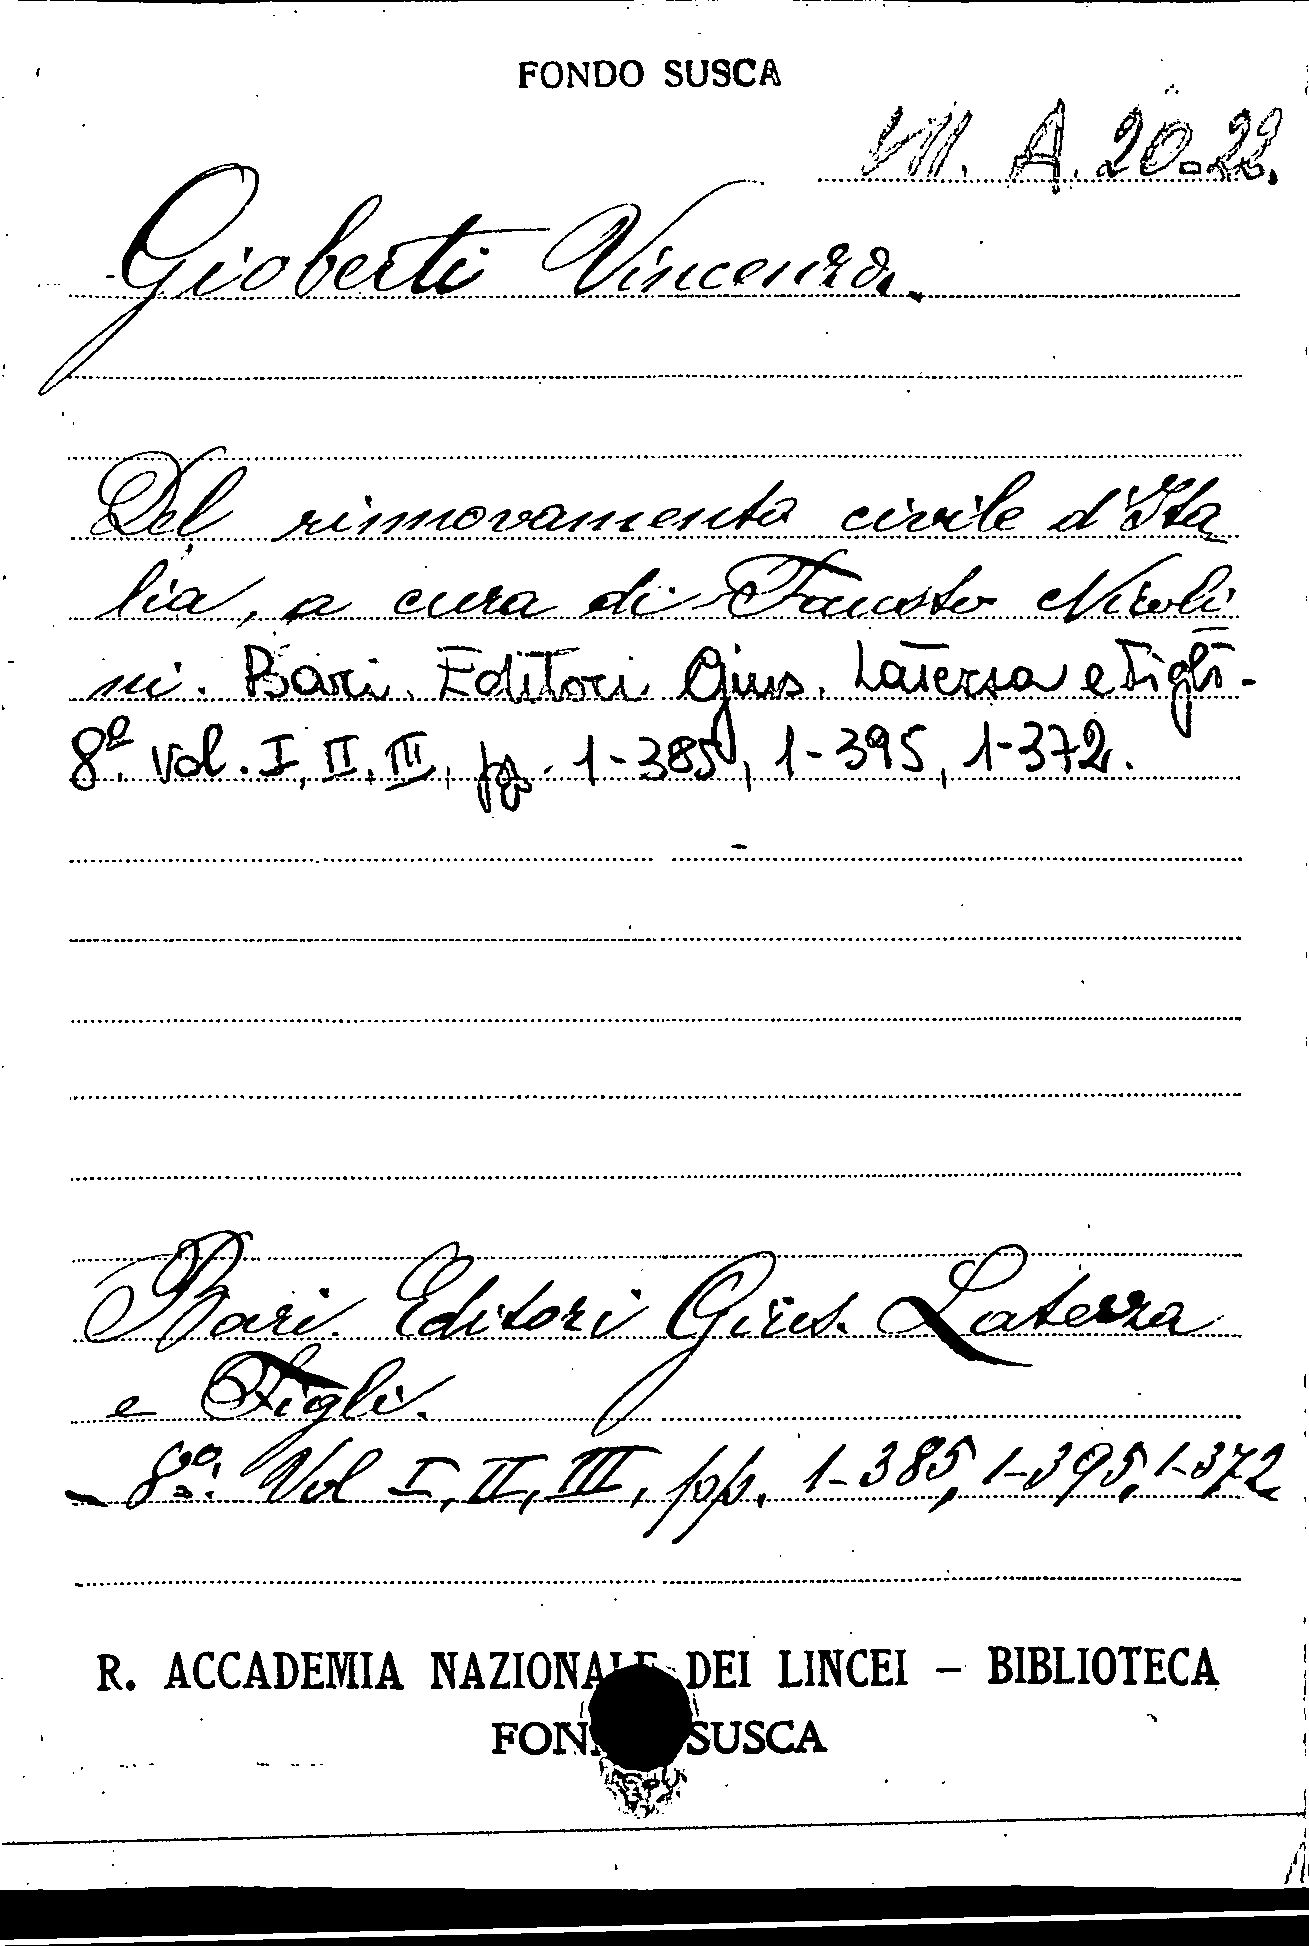 FONDO SUSCA
VII. A. 20-22.
Gioberti Vincenzo.
Del rinnovamento civile d'Ita
lia, a cura di Fausto Nicoli
ni. Bari. Editori Gius. Laterza e Figli-
8º. Vol. I, II, III, pg. 1-385, 1-395, 1-372.
Bari. Editori Gius. Laterza
e Figli.
8º: Vol I, II, III, pp. 1-385, 1-395, 1-372
R. ACCADEMIA NAZIONALE DEI LINCEI - BIBLIOTECA
FONDO SUSCA